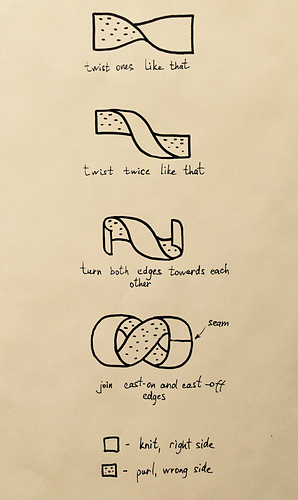 twist ones like that
twist twice like that
turn both edges towards each
other
seam
join cast-on and cast-off
edges
- knit, right side
- purl, wrong side